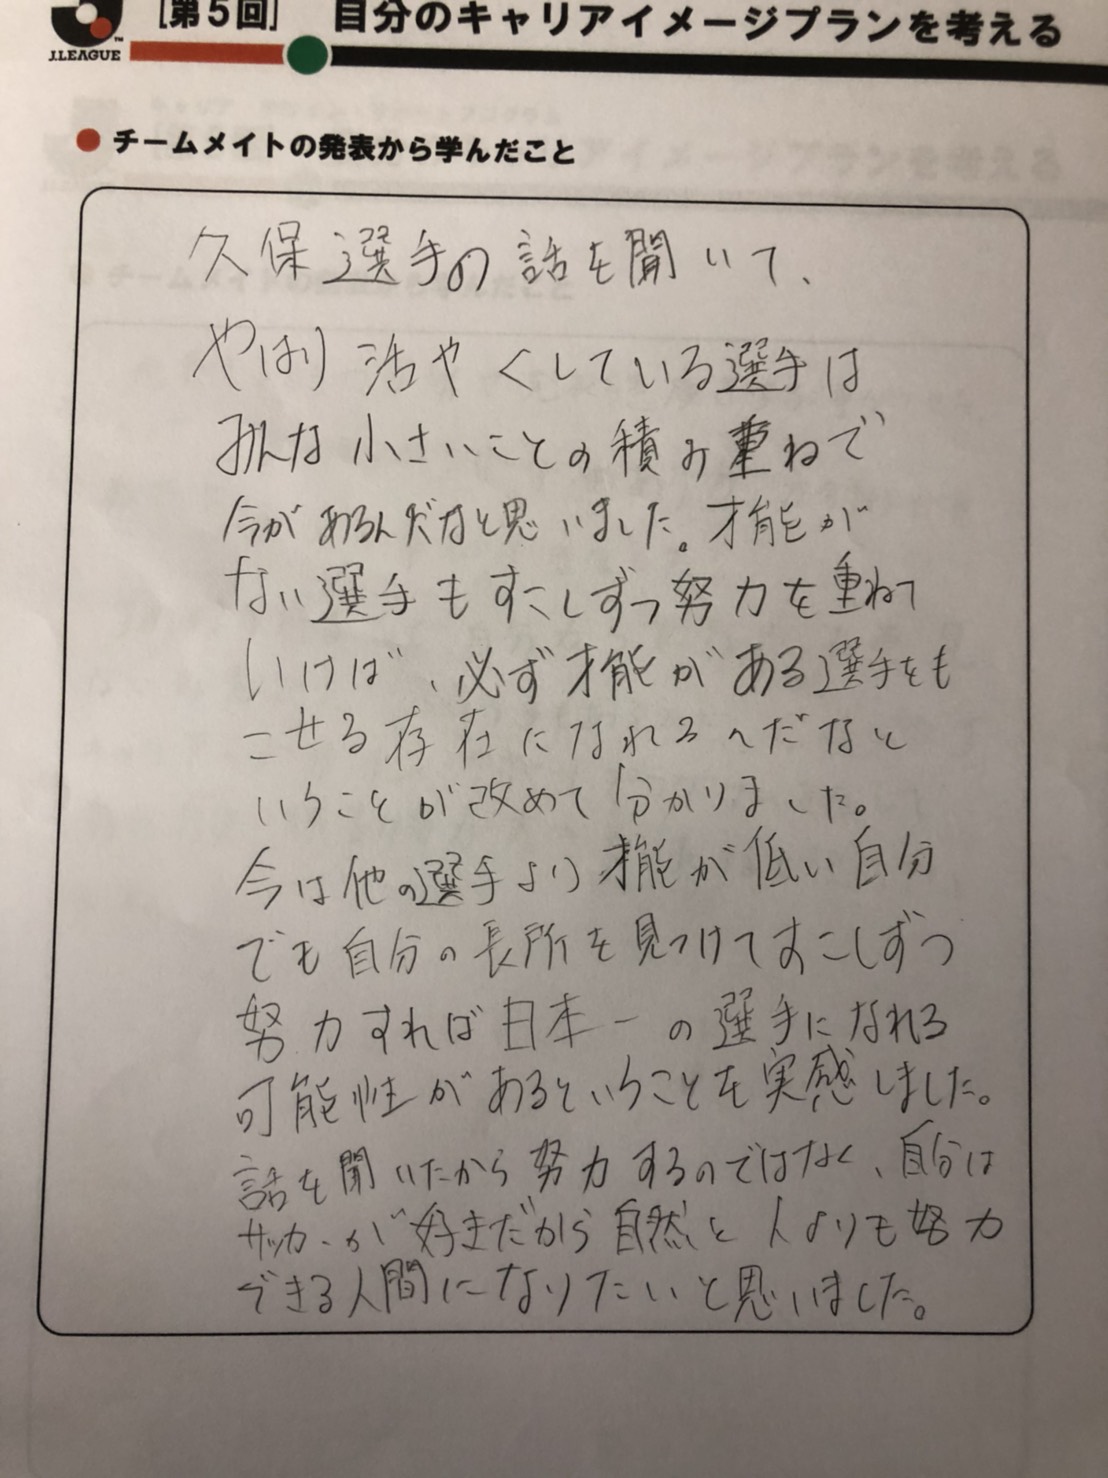 [第5回] 自分のキャリアイメージプランを考える
J.LEAGUE
チームメイトの発表から学んだこと
久保選手の話を聞いて、
やはり活やくしている選手は
みんな小さいことの積み重ねで
今があるんだなと思いました。才能が
ない選手もすこしずつ努力を重ねて
いけば、必ず才能がある選手をも
こせる存在になれるんだなと
いうことが改めて分かりました。
今は他の選手より才能が低い自分
でも自分の長所を見つけてすこしずつ
努力すれば日本一の選手になれる
可能性があるということを実感しました。
話を聞いたから努力するのではなく、自分は
サッカーが好きだから自然と人よりも努力
できる人間になりたいと思いました。